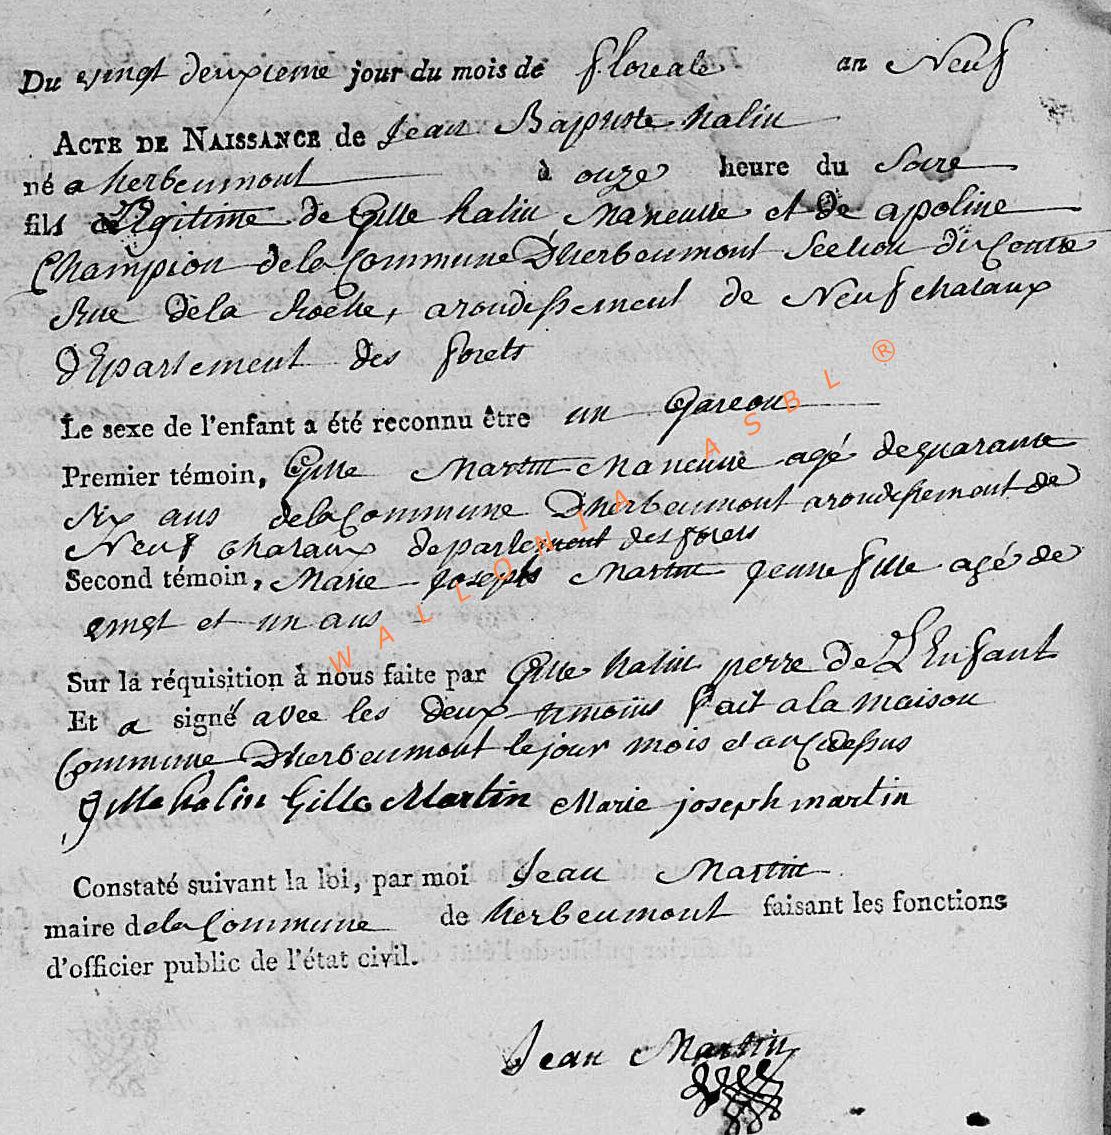 Du vingt deuxieme jour du mois de floreale an Neuf
ACTE DE NAISSANCE de Jean Baptiste halin
né a herbeumont à onze heure du Soire
fils Legitime de Gille halin Maneuvre et de apoline
Champion dela Commune Dherbeumont Section du Centre
Rue dela Roche, arondissement de Neufchataux
département des forets
Le sexe de l'enfant a été reconnu être un Garcon
Premier témoin, Gille Martin Maneuvre agé dequarante
Six ans dela Commune Dherbeumont arondissement de
Neuf chataux departement des forets
Second témoin, Marie Joseph Martin jeune fille agé de
vingt et un ans
Sur la réquisition à nous faite par Gille halin perre de L'Enfant
Et a signé avec les deux temoins fait a la maison
Commune Dherbeumont le jour mois et an Cidessus
gille halin Gille Martin Marie joseph martin
Constaté suivant la loi, par moi Jean Martin
maire dela Commune de herbeumont faisant les fonctions
d'officier public de l'état civil.
Jean Martin
WALLONIA ASBL ®